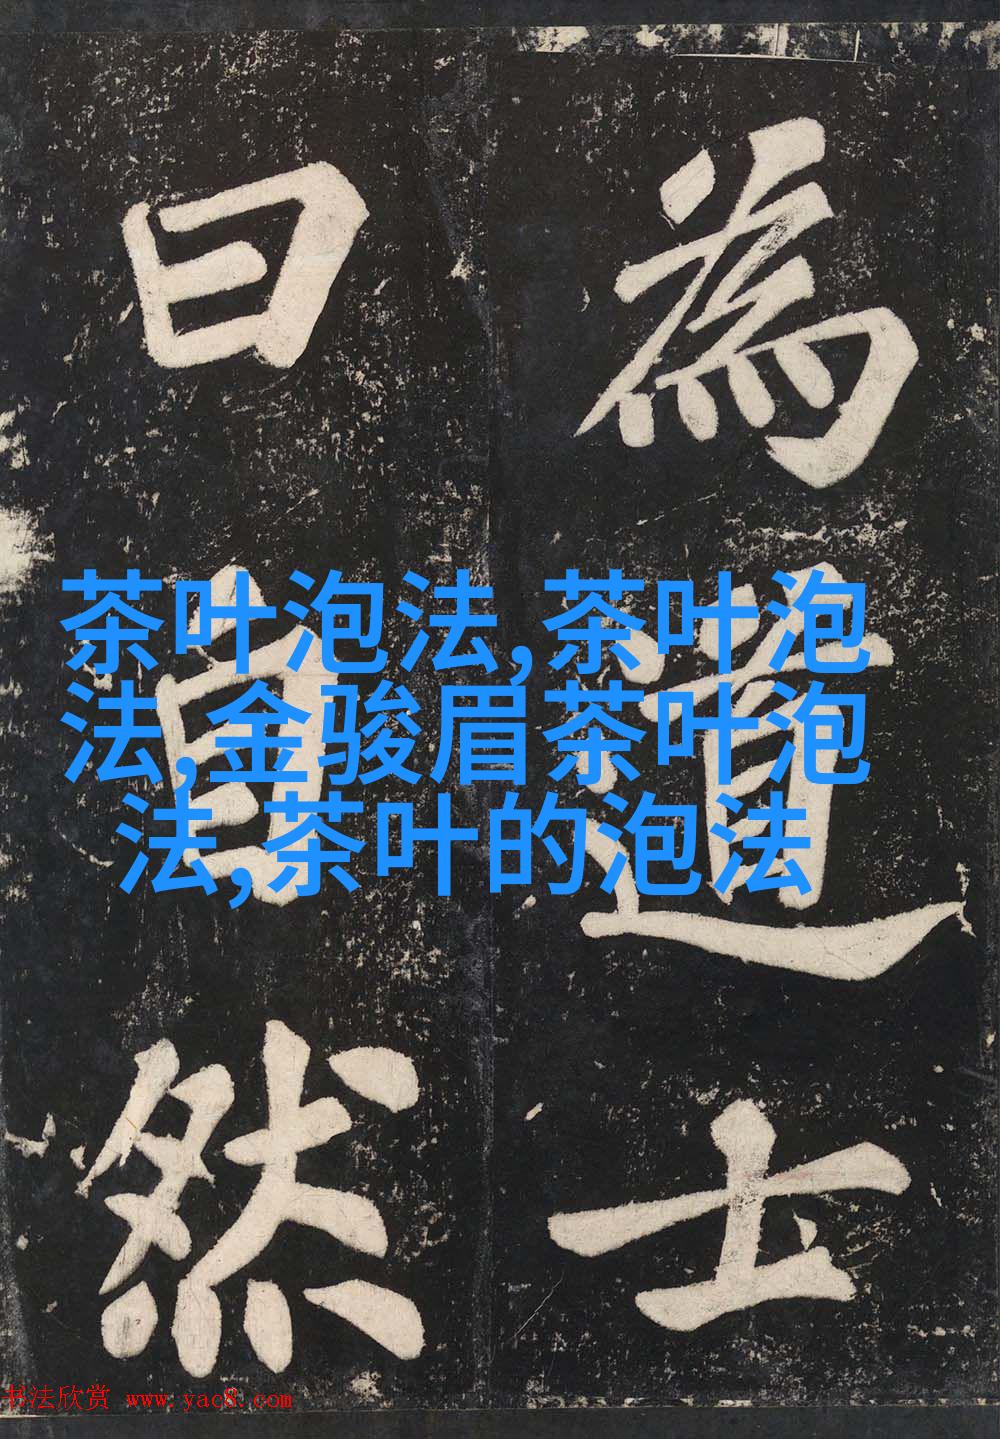 為道士
曰自然
茶叶泡法,茶叶泡
法,金骏眉茶叶泡
法,茶叶的泡法
书法欣赏 www.yac8.com